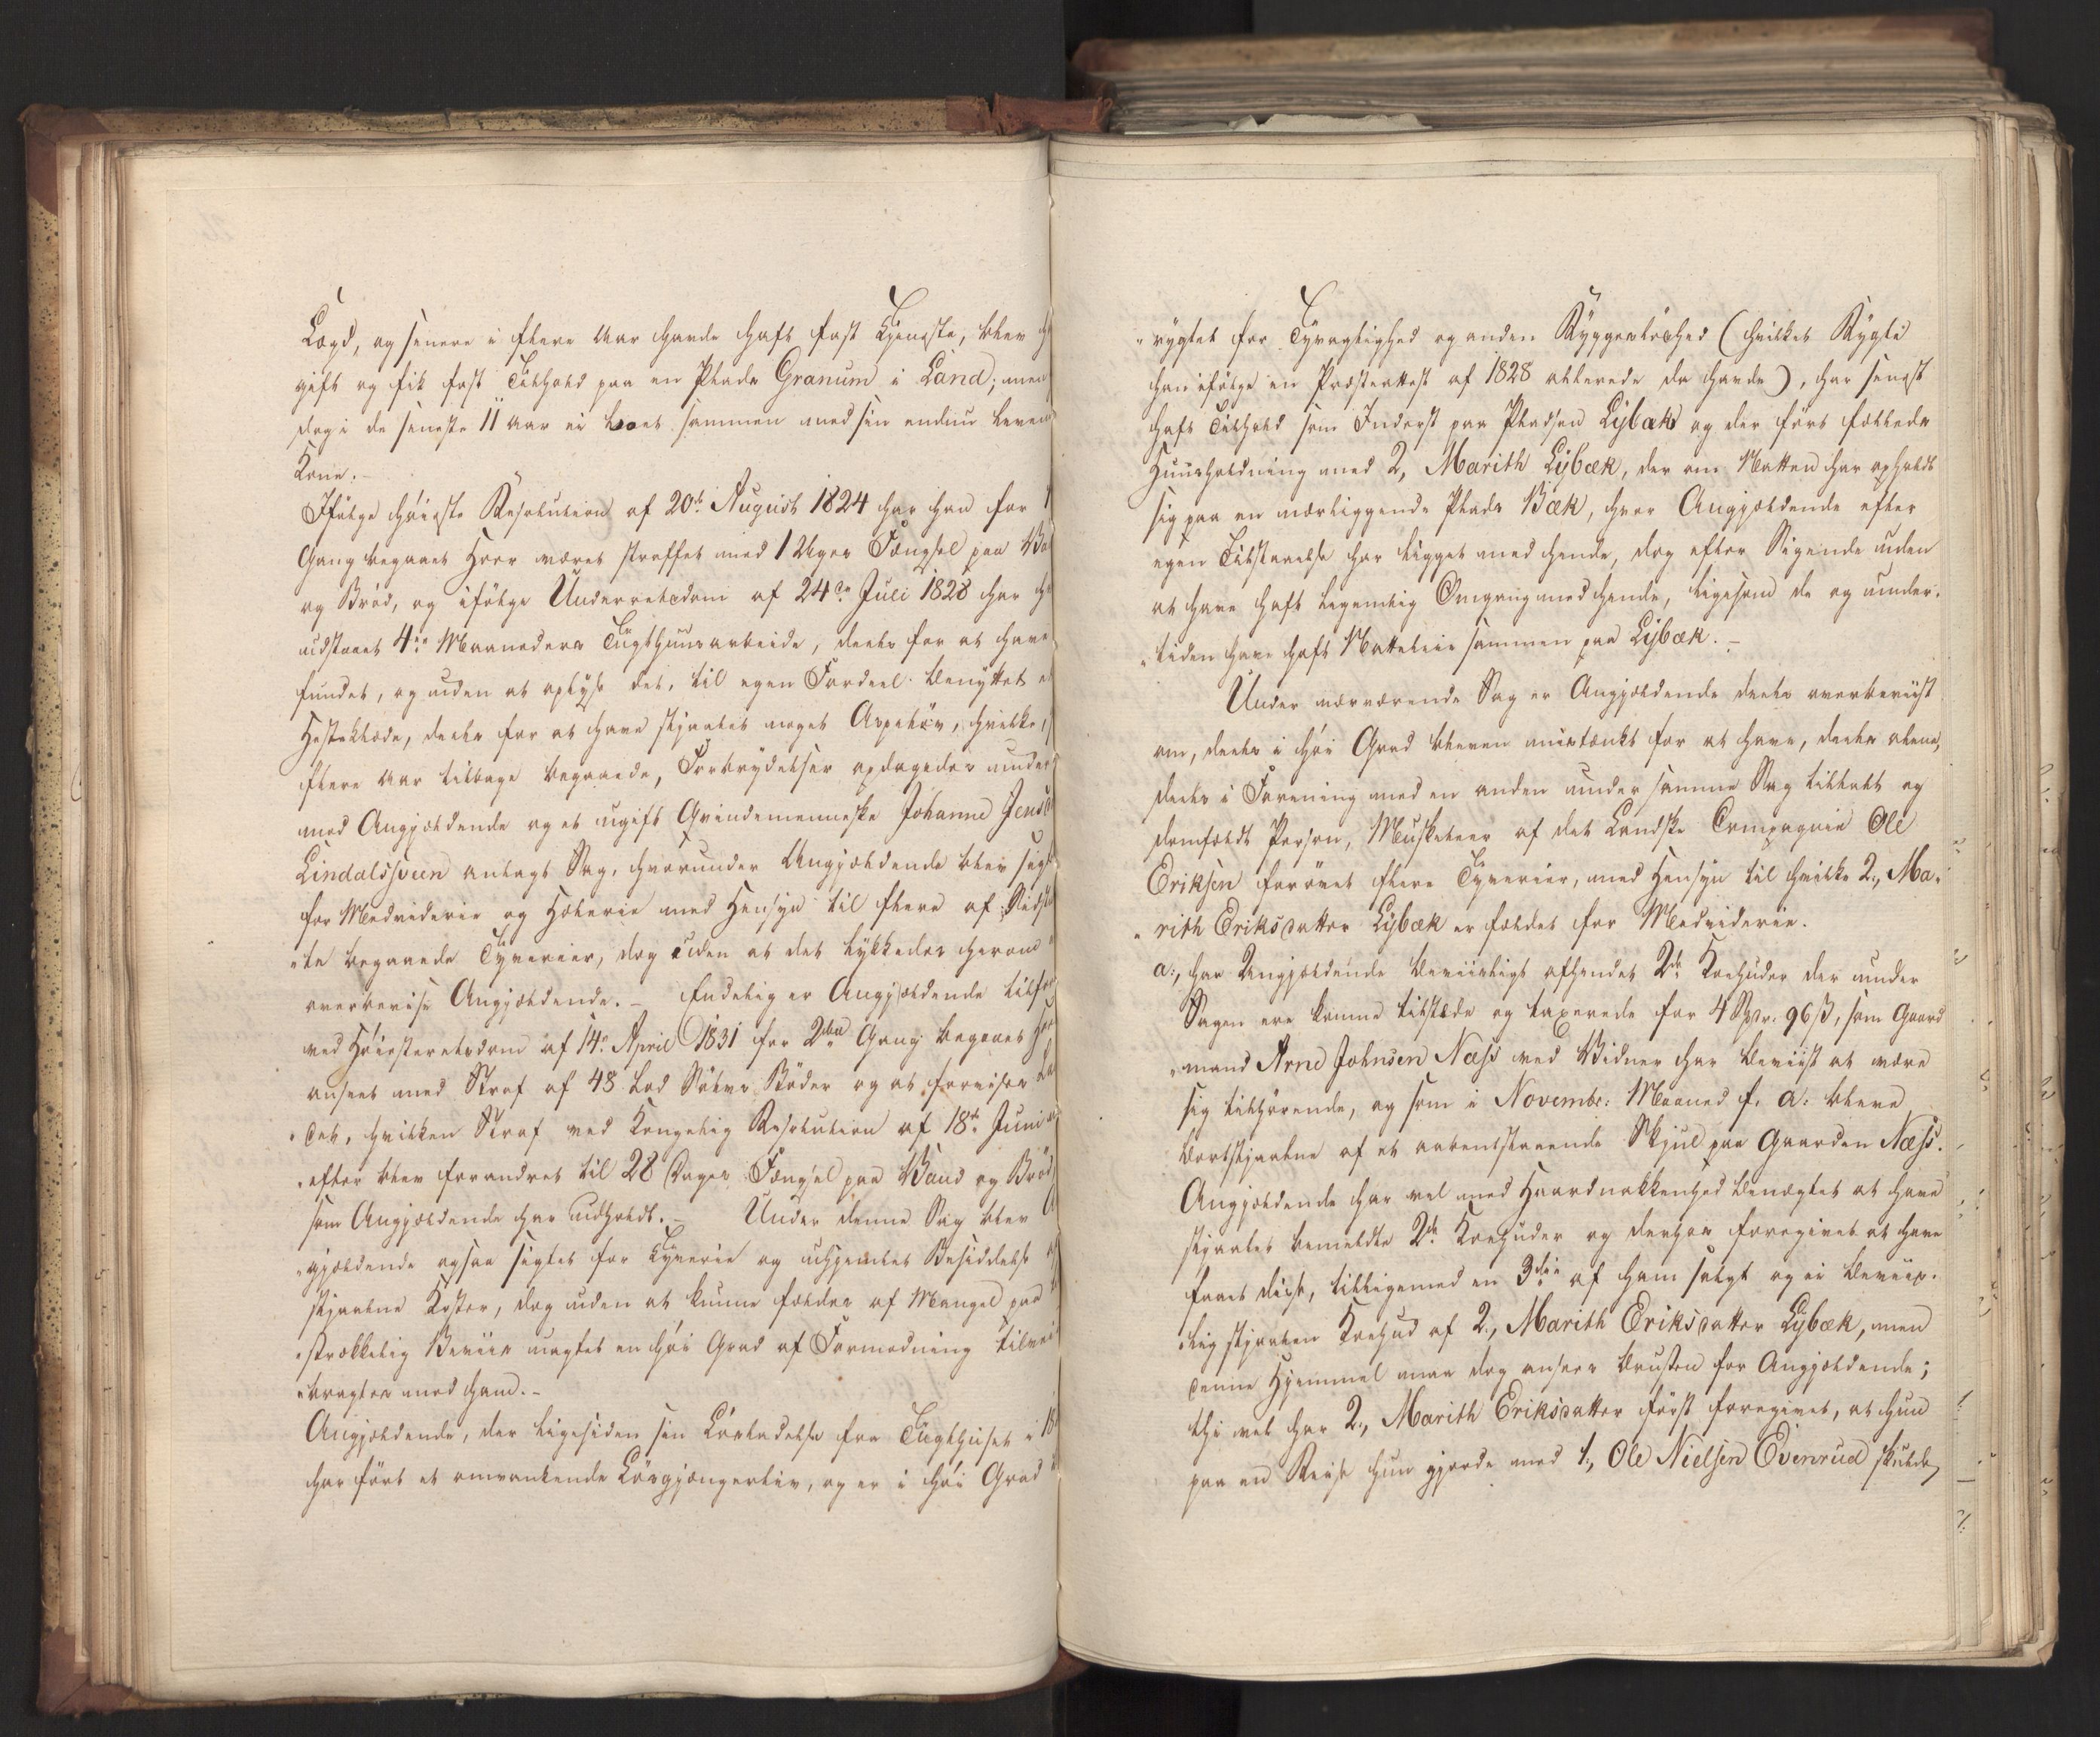 Lægd, og senere i flere Aar havde haft fast Tjeneste, blev h
gift og fik fast Tilhold paa en Plads Granum i Land; men
dog i de seneste 11 Aar ei boet sammen med sin endnu leven
Kone. -
Ifølge høieste Resolution af 20de August 1824 har han for 1
Gang begaaet Hoer været straffet med 1 Uges Fængsel paa Va
og Brød, og ifølge Underretsdom af 24de Juli 1828 har h
udstaaet 4re Maaneders Tugthuusarbeide, deels for at have
fundet, og uden at oplyse det, til egen Fordeel benyttet e
Hesteklæde, deels for at have stjaalet noget Aspeløv, hvilke,
flere Aar tilbage begaaede, Forbrydelser opdagedes under
mod Angjældende og et ugift Qvindemenneske Johanne Jensd
Lindalssveen anlagt Sag, hvorunder Angjældende blev sigt
for Medvidenie og Hæleri med Hensyn til flere af Sidst
„te begaaede Tyverier, dog uden at det lykkedes herom
overbevise Angjældende. - Endelig er Angjældende tilfor
ved Høiesteretsdom af 14de April 1831 for 2den Gang begaaet Hoe
anseet med Straf af 48 Lod Sølvs Bøder og at forvises La
„det, hvilken Straf ved Kongelig Resolution af 18de Juni
„efter blev forandret til 28 Dages Fængsel paa Vand og Brød
som Angjældende har udholdt. - Under denne Sag blev A
„gjældende ogsaa sigtet for Tyverie og uhjemlet Besiddelse af
stjaalne Koster, dog uden at kunne fældes af Mangel paa
„strækkelig Beviis uagtet en høi Grad af Formodning tilvei
„bragtes mod ham. -
Angjældende, der ligesiden sin Løsladelse fra Tugthuset i 18
har ført et omvankende Løsgjængerliv, og er i høi Grad
„rygtet for Tyvagtighed og anden Ryggesløshed (hvilket Rygte
han ifølge en Præsteattest af 1828 allerede da havde), har senest
haft Tilhold som Inderst paa Pladsen Lybæk og der ført fælleds
Huusholdning med 2, Marith Lybæk, der om Natten har opholdt
sig paa en nærliggende Plads Bæk, hvor Angjældende efter
egen Tilstaaelse har ligget med hende, dog efter Sigende uden
at have haft legemlig Omgang med hende, ligesom de og under-
„tiden have haft Natteleie sammen paa Lybæk. -
Under nærværende Sag er Angjældende deels overbeviist
om, deels i høi Grad bleven mistænkt for at have, deels alene,
deels i Forening med en anden under samme Sag tiltalt og
domfældt Person, Musketeer af det Landske Compagnie Ole
Eriksen forøvet flere Tyverier, med Hensyn til hvilke 2, Ma-
„rith Eriksdatter Lybæk er fældet for Medvidenie.
a, har Angjældende beviisligt afhændet 2de Koehuder der under
Sagen ere komne tilstede og taxerede for 4 Spdr. 96 ß, som Gaard
„mand Arne Johnsen Næss ved Vidner har beviist at være
sig tilhørende, og som i Novembr. Maaned f. A. bleve
bortstjaalne af et aabentstaaende Skjul paa Gaarden Næss.
Angjældende har vel med Haardnakkenhed benægtet at have
stjaalet bemeldte 2de Koehuder og derhos foregivet at have
faaet disse, tilligemed en 3die af ham solgt og ei beviis-
„lig stjaalen Koehud af 2, Marith Eriksdatter Lybæk, men
denne Hjemmel maa dog ansees brusten for Angjældende;
thi vel har 2, Marith Eriksdatter først foregivet, at hun
paa en Reise hun gjorde med 1, Ole Nielsen Evenrud skulde